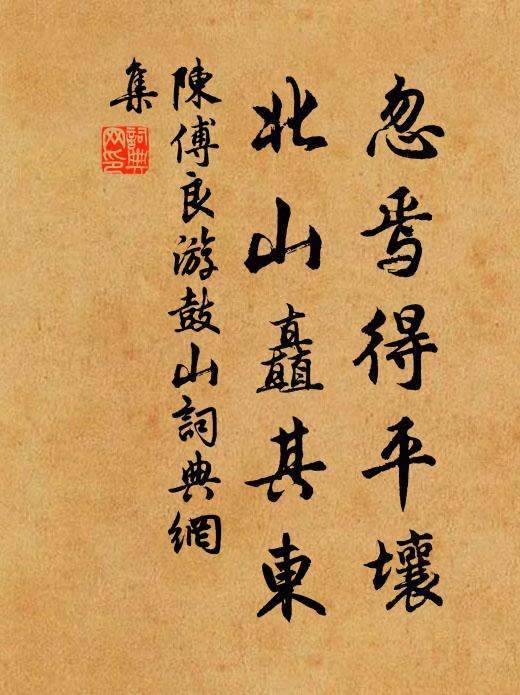 忽焉得平壤
北山矗其東
陳傅良游鼓山詞典網
集
詞典網印